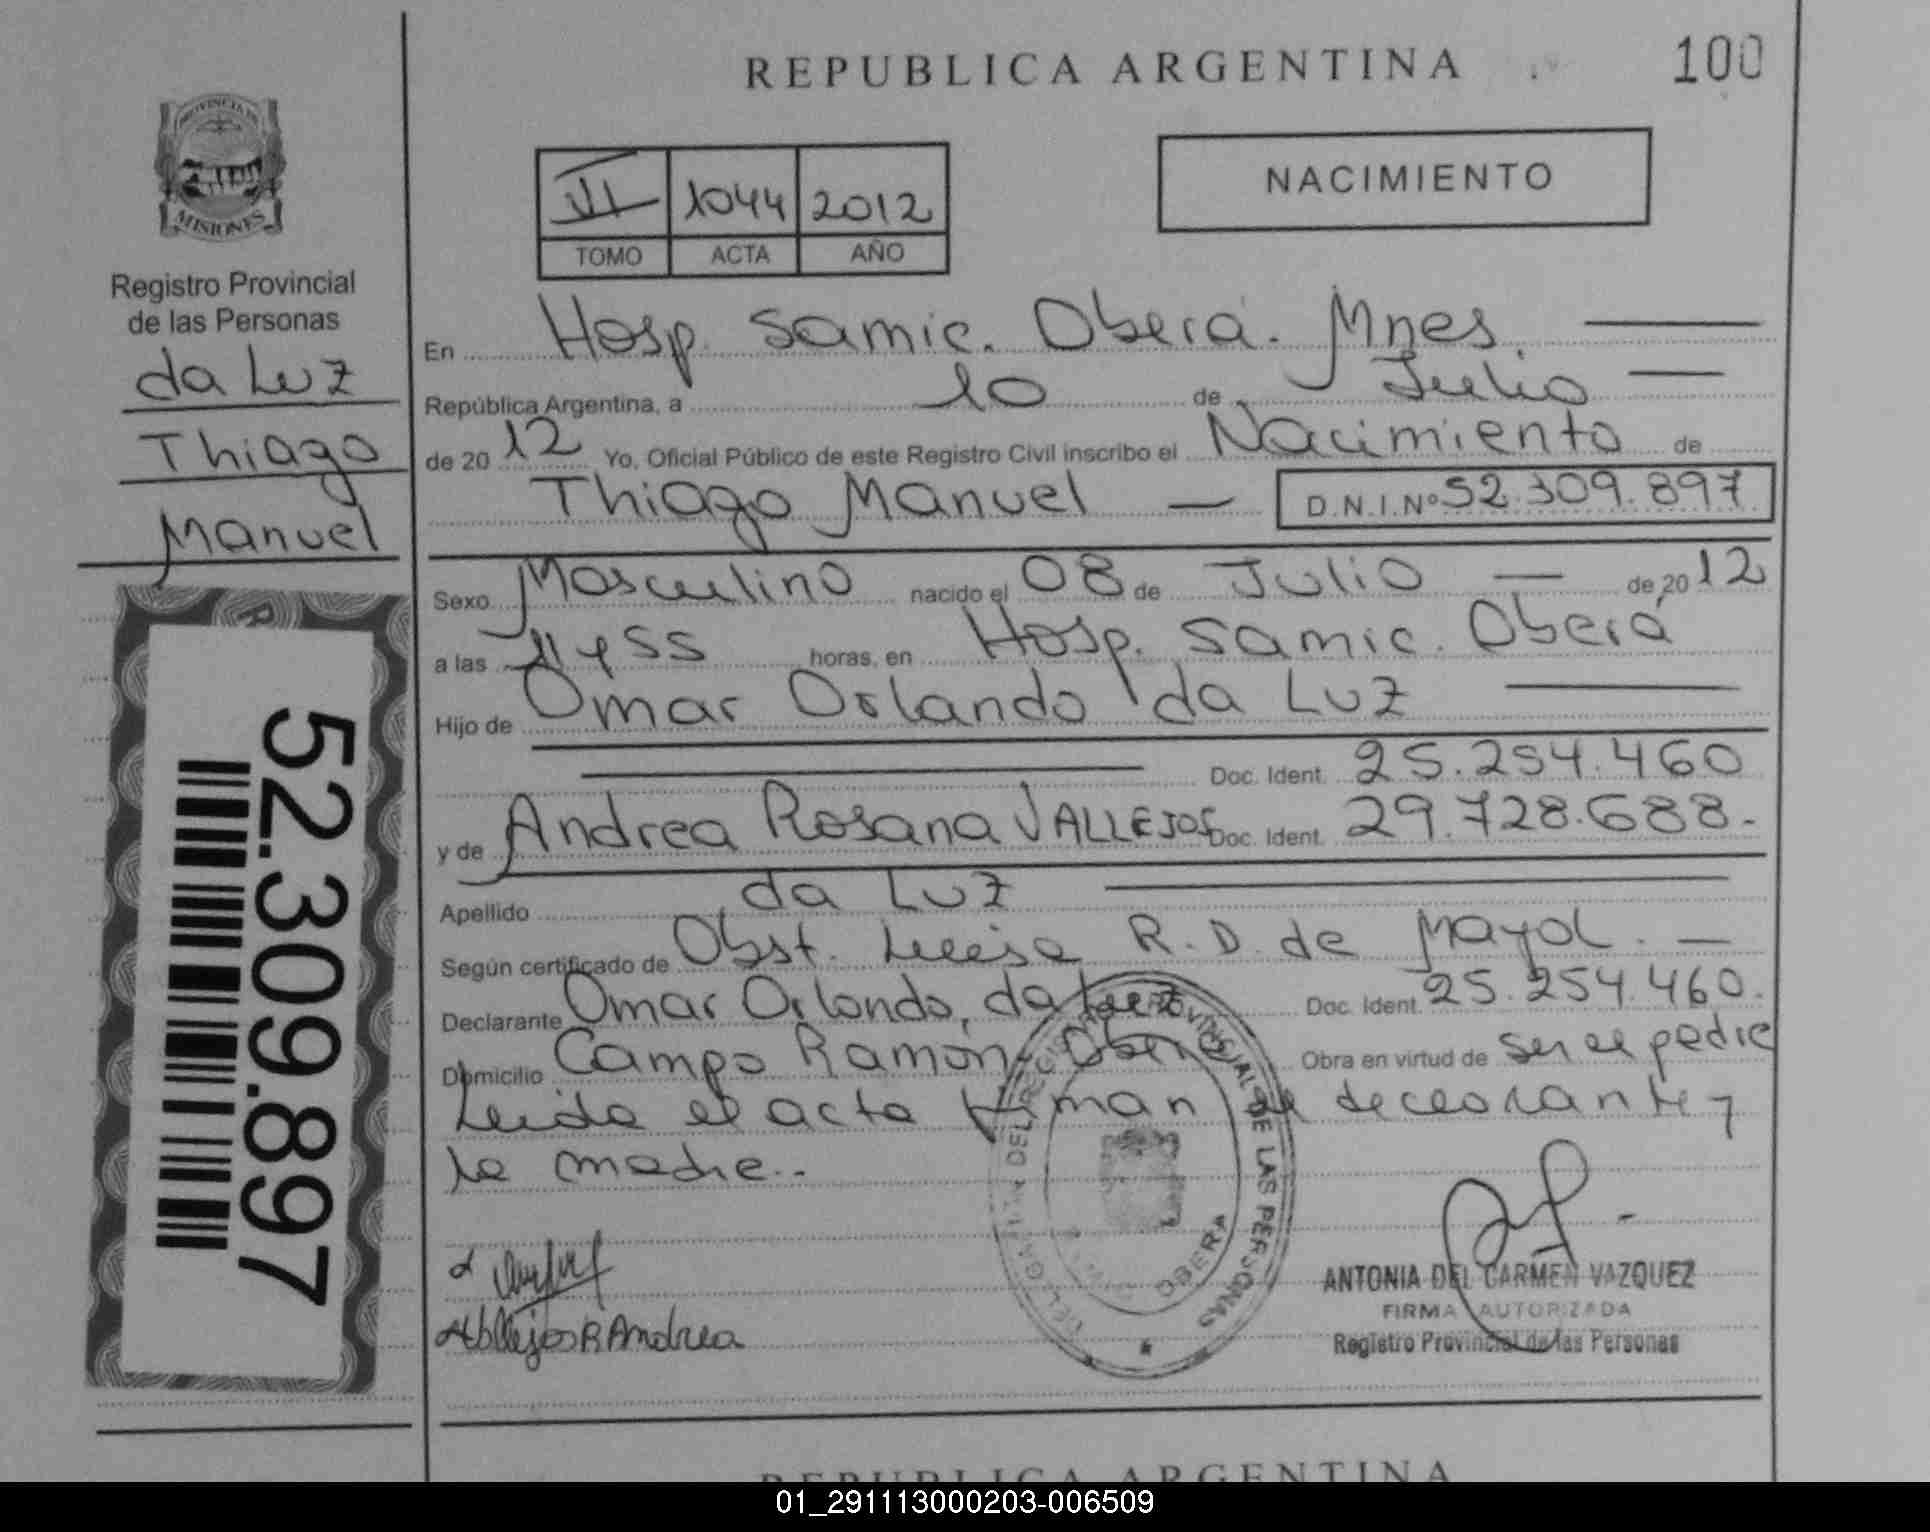 REPUBLICA ARGENTINA
100
PROVINCIA DE
MISIONES
Registro Provincial
de las Personas
da Luz
Thiago
Manuel
52.309.897
VI 1044 2012
TOMO ACTA AÑO
NACIMIENTO
En Hosp. Samic. Oberá. Mnes.
República Argentina, a 10 de Julio
de 2012 Yo, Oficial Público de este Registro Civil inscribo el Nacimiento de
Thiago Manuel D.N.I.Nº 52.309.897
Sexo Masculino nacido el 08 de Julio de 2012
a las 11 y 55 horas, en Hosp. Samic. Oberá
Hijo de Omar Orlando da Luz
Doc. Ident. 25.254.460
y de Andrea Rosana VALLEJOS Doc. Ident. 29.728.688.
Apellido da Luz
Según certificado de Obst. Luisa R. D. de Mayol.
Declarante Omar Orlando, da Luz Doc. Ident. 25.254.460.
Domicilio Campo Ramón Oberá Obra en virtud de ser el padre
Leida el acta firman el declarante y
la madre..
Vallejos R Andrea
DELEGACION DEL REGISTRO PROVINCIAL DE LAS PERSONAS
OBERA
ANTONIA DEL CARMEN VAZQUEZ
FIRMA AUTORIZADA
Registro Provincial de las Personas
REPUBLICA ARGENTINA
01_291113000203-006509